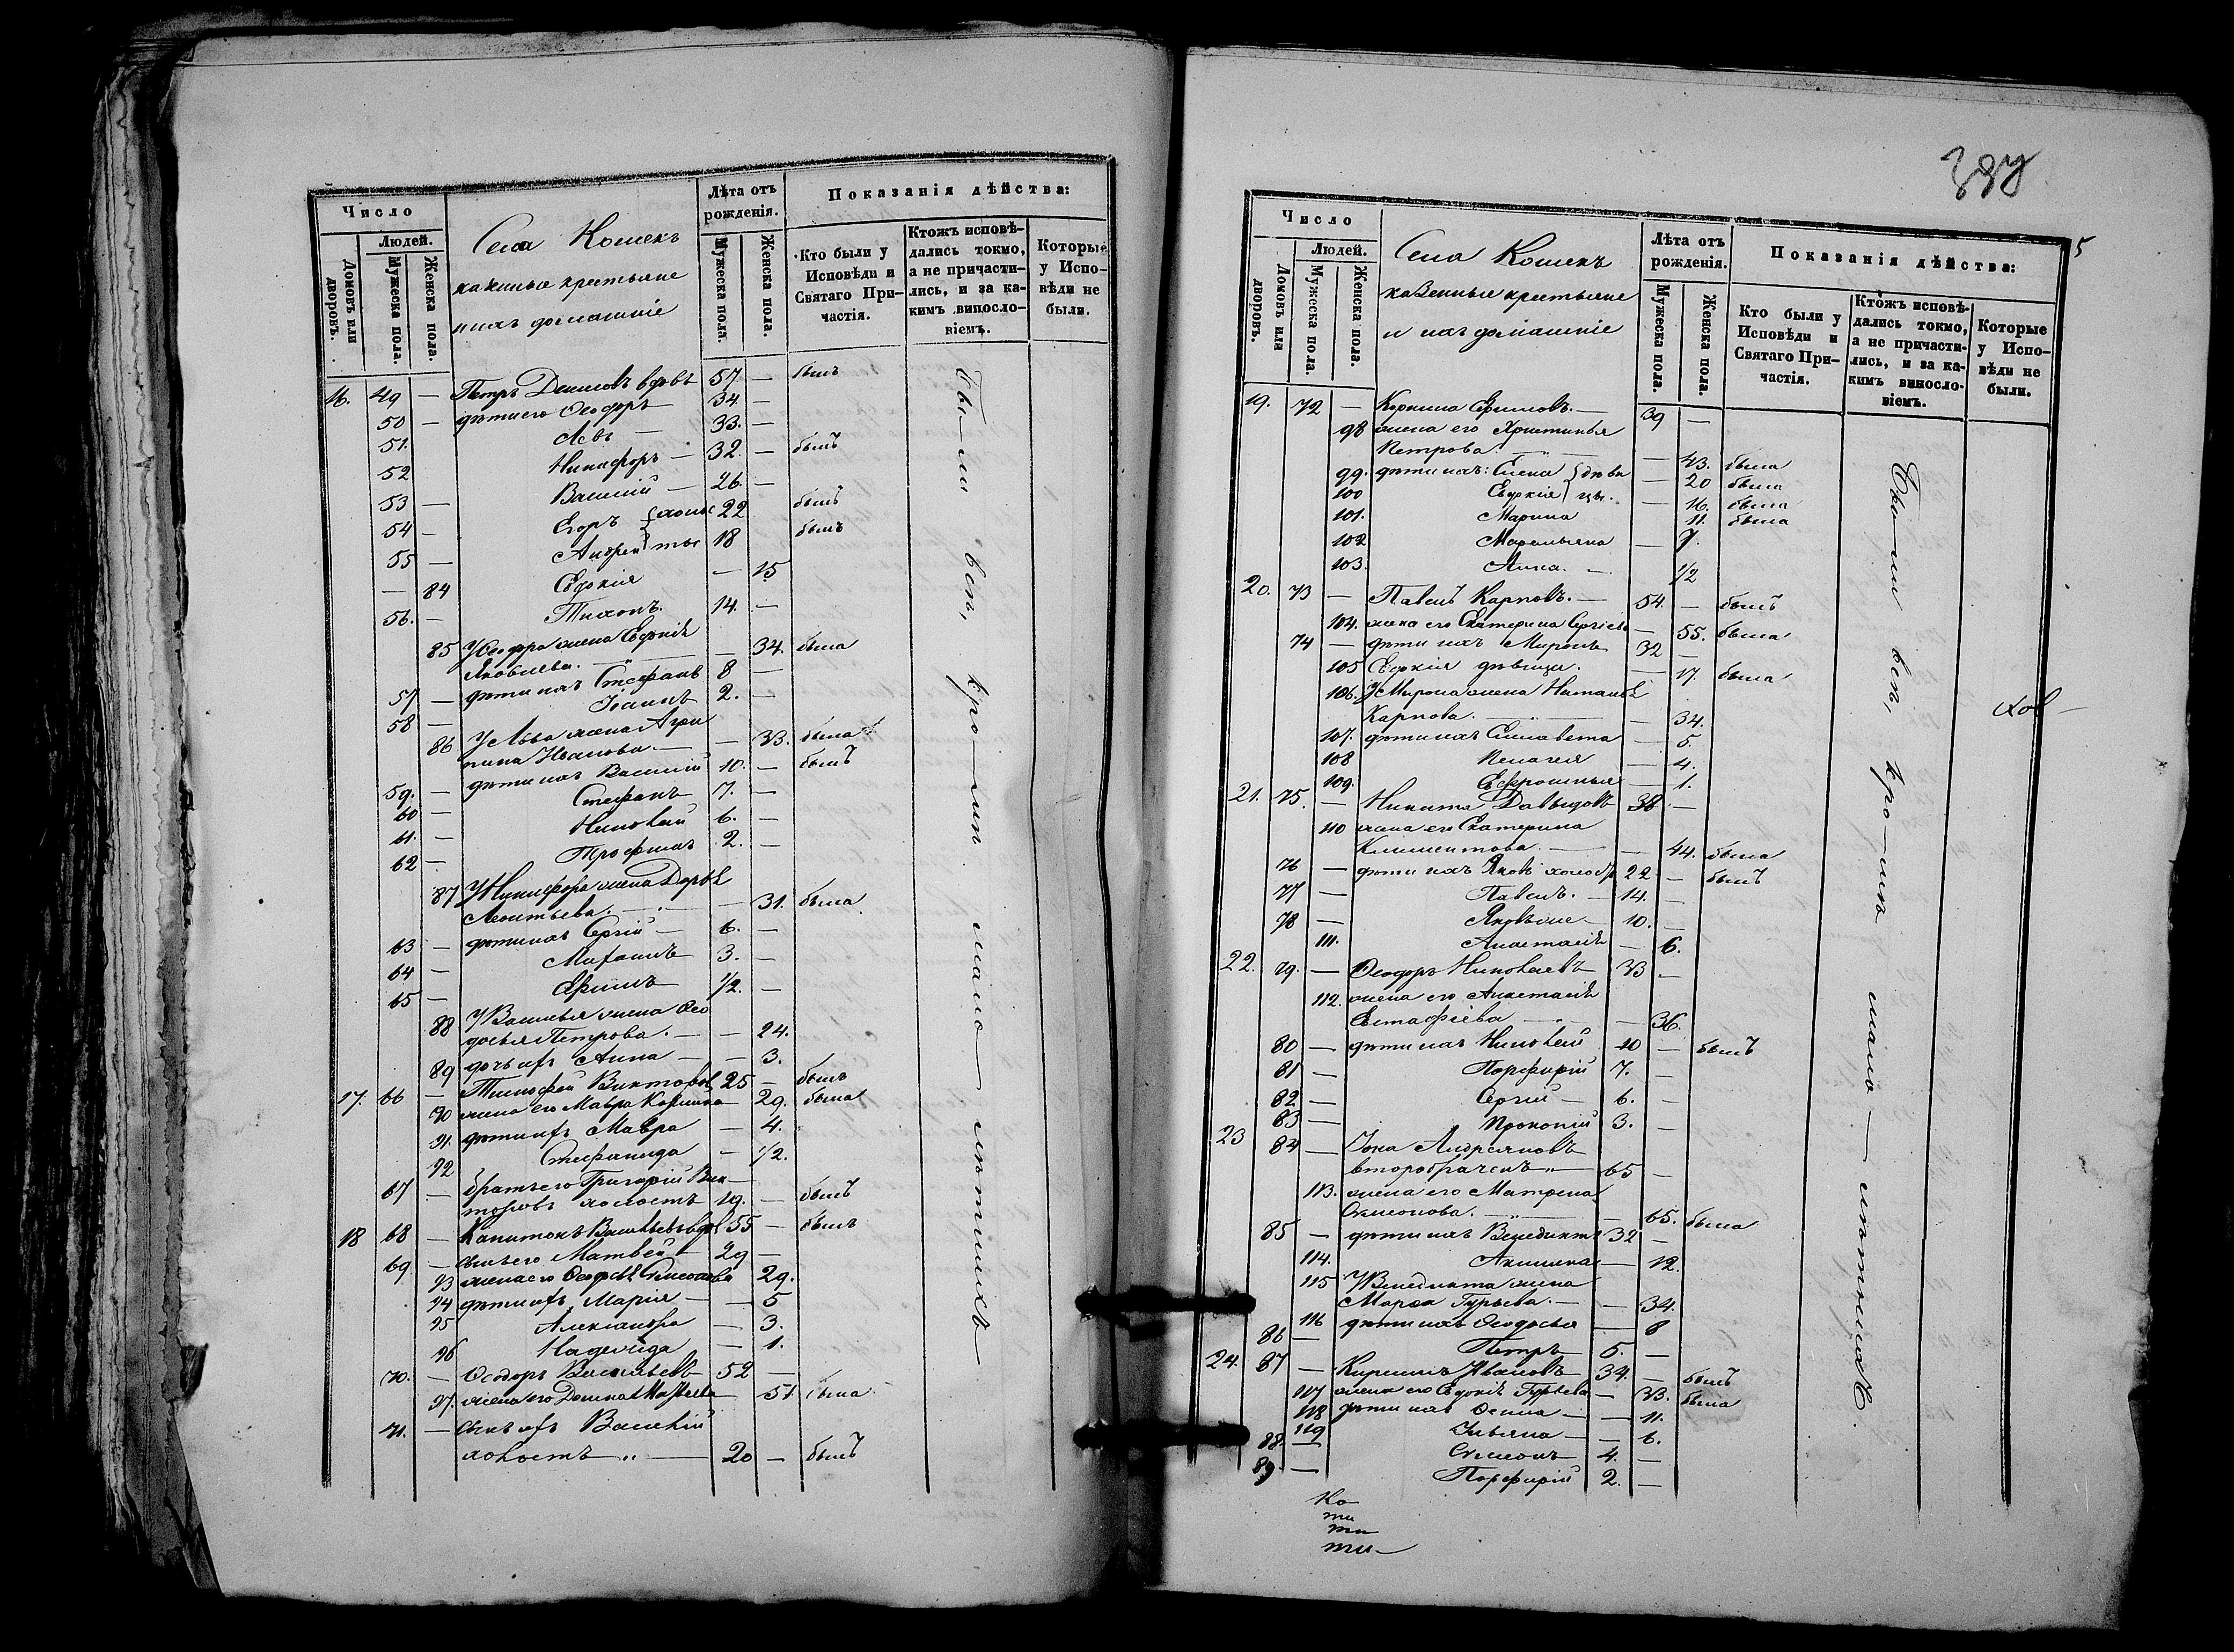 Число
Людей.
Домовъ или дворовъ.
Мужеска пола.
Женска пола.
Села Кошекъ
казенные крестьяне
и ихъ домашніе
Лѣта отъ рожденія.
Мужеска пола.
Женска пола.
Показанія дѣйства:
Кто были у Исповѣди и Святаго При-частія.
Ктожъ исповѣ-дались токмо, а не причасти-лись, и за ка-кимъ винос­ло-віемъ.
Которые у Испо-вѣди не были.
16. 49 — Петръ Денисовъ вдовъ 57 — былъ
50 — дѣти его Ѳеодоръ 34. —
51. Левъ — 33. —
52 Никифоръ — 32. — былъ
53 — Василій — 26. —
54 — Егоръ холос 22 былъ
55 — Андрей тые 18 былъ
— 84 Евдокія — 15
56. — Тихонъ. 14. —
85 У Ѳеодора жена Евдокія
Яковлева. — 34. была
57 — дѣти ихъ Стефанъ 8 —
58 — Іоаннъ 2. —
86 У Льва жена Агри
пина Иванова. — 33. была
59. — дѣти ихъ Василій 10. — былъ
60 — Стефанъ 7. —
61. — Николай 6. —
62 — Трофимъ 2. —
87 У Никифора жена Дарья
Леонтьева. — 31. была
63 — дѣти ихъ Сергій — 6. —
64 — Митрофанъ 3. —
65 — Ефимъ 1/2. —
88 У Василья жена Ѳео
досья Петрова. — 24.
89 дочь ихъ Анна — 3.
17. 66 — Тимофей Викторовъ 25 — былъ
90 жена его Мавра — 29. была
91. дѣти ихъ Мавра — 4.
92 Стефанида — 1/2.
67 — братъ его Григорій Вик-
торовъ холостъ 19. — былъ
18 68 — Капитонъ Васильевъ вдовъ 55 — былъ
69 — сынъ его Матвей 29 —
93 жена его 29.
94 дѣти ихъ Марія — 5
95 Александра — 3.
96 Надежда — 1.
70. — Ѳеодоръ Васильевъ 52 —
97. жена его Домна Матвеева — 51. была
71. — сынъ ихъ Василій
холостъ „ — 20 — былъ
Бы—ли всѣ, кро—мѣ мало—лѣтнихъ
387
5
Число
Людей.
Домовъ или дворовъ.
Мужеска пола.
Женска пола.
Села Кошекъ
казенные крестьяне
и ихъ домашніе
Лѣта отъ рожденія.
Мужеска пола.
Женска пола.
Показанія дѣйства:
Кто были у Исповѣди и Святаго При-частія.
Ктожъ исповѣ-дались токмо, а не причасти-лись, и за ка-кимъ винос­ло-віемъ.
Которые у Испо-вѣди не были.
19. 72 — Ефимовъ. — 39 —
98 жена его Христинья
Петрова. — 43. была
99. дѣти ихъ: Елена дѣви — 20 была
100 Евдокія цы. — 16. была
101. Марина 11. была
102 Маремьяна — 7.
103. Анна. — 1/2
20. 73 — Павелъ Карповъ. — 54. — былъ
104. жена его Екатерина Сергѣева — 55. была
74 — дѣти ихъ Миронъ 32 —
105 Евдокія дѣвица. — 17. была
106. У Мирона жена Наталья
Карпова. — 34.
107. дѣти ихъ Елисавета — 5.
108 Пелагея — 4.
109. Ефросинья — 1.
21. 75. — Никита Давыдовъ 38. —
110 жена его Екатерина
Климентова — 44. была
76 — дѣти ихъ Яковъ холостъ 22 — былъ
77 — Павелъ. — 14. —
78 — Яковъ же — 10. —
111. Анастасія — 6.
22. 79. — Ѳеодоръ Николаевъ 33 —
112. жена его Анастасія
Евстафіева — 36.
80 — дѣти ихъ Николай 10 — былъ
81 — Порфирій 7. —
82 — Сергій — 6. —
83 — Прокопій 3. —
23 84 — Іона Андреяновъ
второбраченъ „ — 65 —
113. жена его Матрена
Симонова. — 65. была
85 — дѣти ихъ Венедиктъ 32 —
114. Акилина — 12.
115 У Венедикта жена
Марѳа Гурьева. — 34.
116 дѣти ихъ Ѳеодосья — 8
86 — Петръ — 5. —
24. 87 — Кириллъ Ивановъ 34. — былъ
117 жена его Евдокія Гурьева — 33. была
118 дѣти ихъ — 11.
119 Ульяна — 6.
88. — Симеонъ 4. —
89 — Порфирій 2. —
Бы—ли всѣ, кро—мѣ мало—лѣтнихъ.